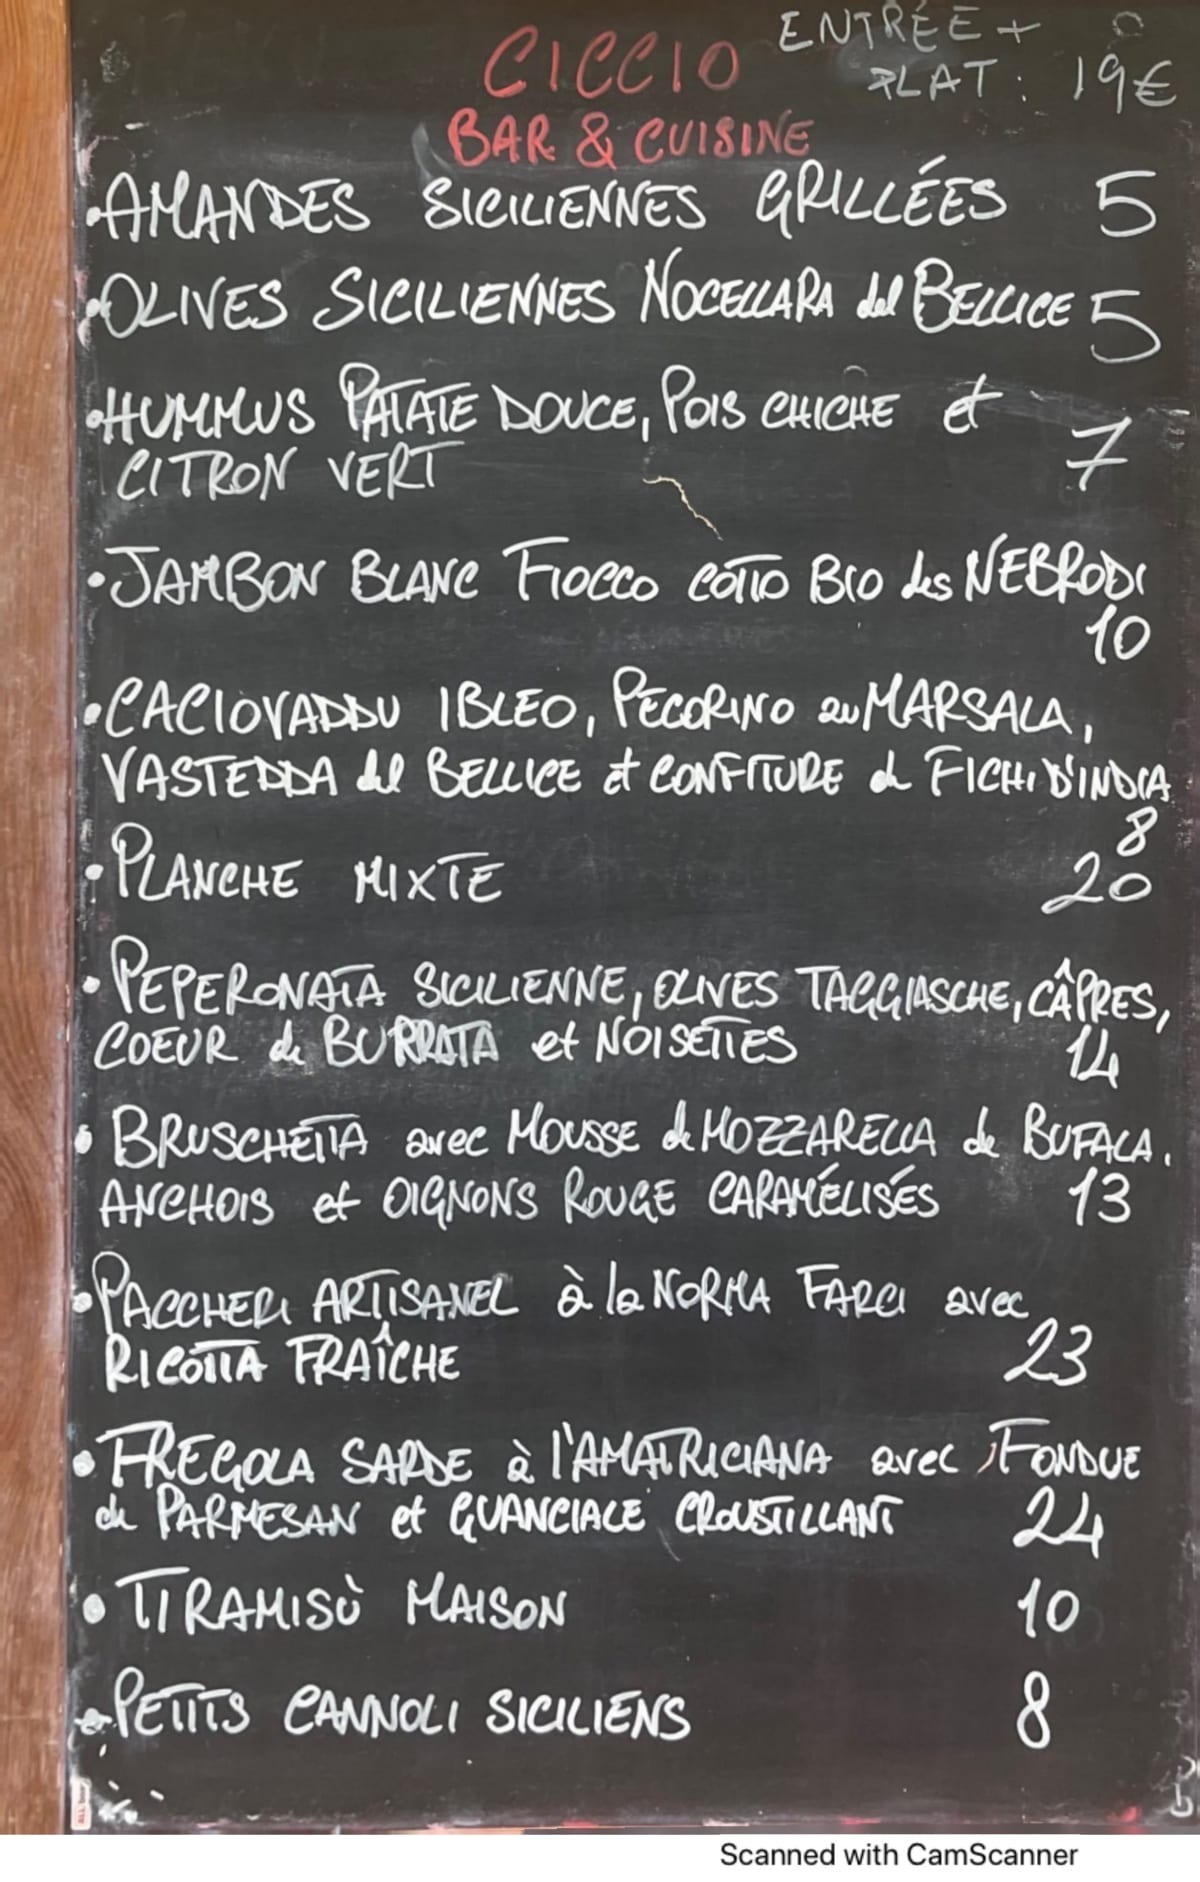 ENTRÉE +
PLAT : 19€
CICCIO
BAR & CUISINE
• AMANDES SICILIENNES GRILLÉES 5
• OLIVES SICILIENNES NOCELLARA del BELLICE 5
• HUMMUS PATATE DOUCE, POIS CHICHE et
CITRON VERT 7
• JAMBON BLANC FIOCCO COTTO BIO des NEBRODI
10
• CACIOVADDU IBLEO, PECORINO au MARSALA,
VASTEDDA del BELLICE et CONFITURE de FICHI D'INDIA
8
• PLANCHE MIXTE 20
• PEPERONATA SICILIENNE, OLIVES TAGGIASCHE, CÂPRES,
COEUR de BURRATA et NOISETTES 14
• BRUSCHETTA avec MOUSSE de MOZZARELLA de BUFALA,
ANCHOIS et OIGNONS ROUGE CARAMÉLISÉS 13
• PACCHERI ARTISANEL à la NORMA FARCI avec
RICOTTA FRAÎCHE 23
• FREGOLA SARDE à l'AMATRICIANA avec FONDUE
de PARMESAN et GUANCIALE CROUSTILLANT 24
• TIRAMISÙ MAISON 10
• PETITS CANNOLI SICILIENS 8
Scanned with CamScanner